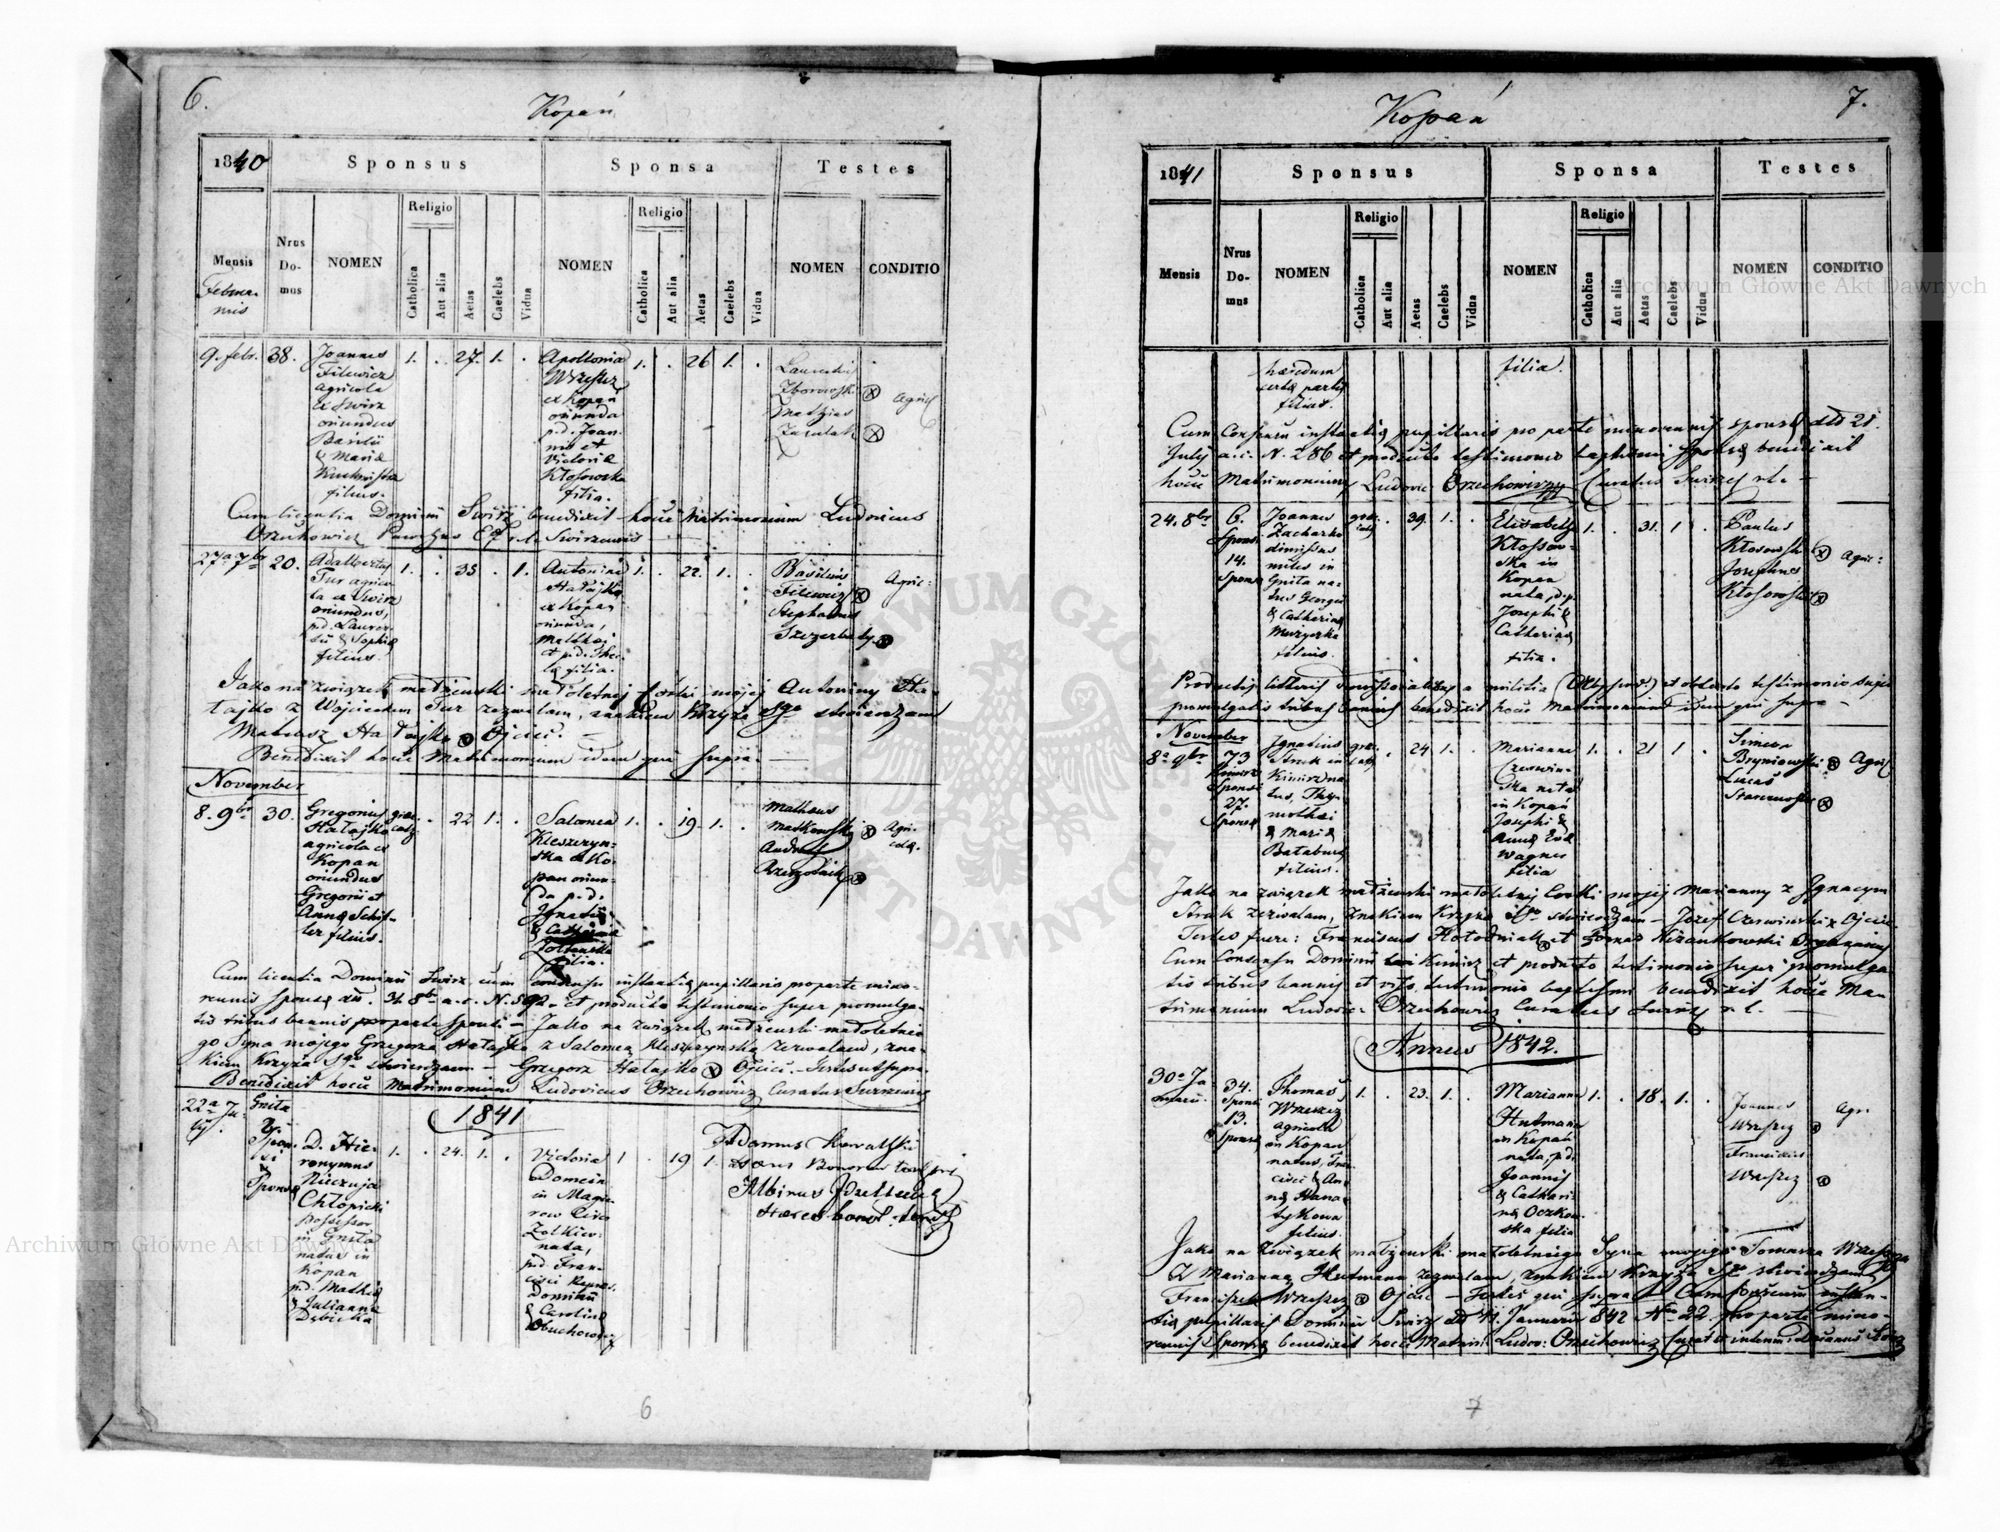 6.
Kopań
1840
Sponsus
Sponsa
Testes
Mensis
Februa-
rius
Nrus
Do-
mus
NOMEN
Religio
Catholica
Aut alia
Aetas
Caelebs
Vidua
NOMEN
Religio
Catholica
Aut alia
Aetas
Caelebs
Vidua
NOMEN
CONDITIO
9. febr. 38.
Joannes
Filewicz
agricola
ex Swirz
oriundus
Basilii
& Maria
filius.
1. . 27. 1. .
Apollonia
Wrzeszcz
ex Kopań
oriunda
p.d. Joan-
nis et
Victoria
Kłosowska
filia.
1. . 26 1. .
Laurentius
Zborowski
Mathias
Agric
Cum licentia Dominii Swirz benedixit hocce Matrimonium Ludovicus
Orzechowicz
27a 7br 20.
Adalbertus
Tur agrico-
la ex Swirz
oriundus,
p.d. Lauren-
tii & Sophia
filius.
1. . 35 . 1.
Antonina
Hatajko
ex Kopań
oriunda,
Mathei
et p.d. The-
la filia.
1. . 22. 1. .
Basilius
Filewicz
Stephanus
Szczerbaty
Agric:
Jako na związek małżeński małoletniej córki mojej Antoniny Ha-
tajko z Wojciechem Tur zezwalam, znakiem Krzyża Sgo stwierdzam
Mateusz Hatajko Ojciec.
Benedixit hocce Matrimonium idem qui supra.
November
8. 9br 30.
Gregorius
Hatajko
agricola ex
Kopan
oriundus
Gregorii et
Anna Schit-
ler filius.
graec.
cath.
. 22 1. .
Salomea
Kleszczyn-
ska ex Ko-
pan oriun-
da p.d.
Ignatii
& Catharina
filia.
1. . 19. 1. .
Matheus
Maćkowski
Andreas
Agri-
cola.
Cum licentia Dominii Swirz cum consensu instantia pupillaris pro parte mino-
rennis sponsa et producto testimonio super promulga-
tis tribus bannis pro parte sponsi - Jako na związek małżeński małoletnie-
go Syna mojego Grzegorza Hatajko z Salomeą Kleszczyńską zezwalam, zna-
kiem Krzyża Sgo stwierdzam - Grzegorz Hatajko Ojciec.
Benedixit hocce Matrimonium Ludovicus Orzechowicz Curatus
1841
22a Ju-
ly.
Gnita
Spon-
si
&
Sponsa
D. Hie-
ronymus
Nieczuja
Chłopicki
possessor
in Gnita
natus in
Kopan
p.d. Mathia
& Julianna
Dębicka
1. . 24. 1. .
Victoria
Domein
in Magie-
row Circ.
Zolkiew-
nata,
p.d. Fran-
cisci
Dominii
& Carolina
Obuchowicz
1 . 19 1.
Adamus Kowalski
Albinus
7.
Kopań
1841
Sponsus
Sponsa
Testes
Mensis
Nrus
Do-
mus
NOMEN
Religio
Catholica
Aut alia
Aetas
Caelebs
Vidua
NOMEN
Religio
Catholica
Aut alia
Aetas
Caelebs
Vidua
NOMEN
CONDITIO
haeredum
certa partis
filius.
filia.
Cum Consensu instantia pupillaris pro parte minorennis sponsa dto 21.
July a.c. N. 286 et producto testimonio baptismi sponsa benedixit
hocce Matrimonium Ludovic: Orzechowicz Curatus Swirz r.l.
24. 8br
6.
Sponsi
14.
Sponsa
Joannes
Zacharko
dimissus
miles in
Gnita na-
tus Georgii
& Catharina
Muzyczka
filius.
graec.
cath.
. 39. 1. .
Elisabeth
Kłossow-
ska in
Kopan
nata, d.p.
Josephi &
Catharina
filia.
1. . 31. 1 .
Paulus
Kłosowski
Josephus
Kłosowski
Agric:
Productis litteris dimissorialibus a militia (Abszyd) et oblato testimonio super
promulgatis tribus bannis benedixit hocce Matrimonium idem qui supra -
November
8a 9br
73
Kimirz
Sponsi
27.
Sponsa
Ignatius
Struk in
Kimirz na-
tus, Thy-
mothei
& Maria
Bataban
filius.
graec.
cath.
. 24. 1. .
Marianna
Czerwin-
ska nata
in Kopań
Josephi &
Anna Eva
Wagner
filia
1. . 21 1 .
Simeon
Bryniowski
Lucas
Agric
Jako na związek małżeński małoletniej Corki mojej Marianny z Ignacym
Struk zezwalam, znakiem Krzyża Sgo stwierdzam - Józef Czerwinski Ojciec
Testes fuere: Franciscus Hołodniak et Tomas Niżankowski Organarius
Cum Consensu Dominii Kimirz et producto testimonio super promulga-
tis tribus bannis et viso testimonio baptismi benedixit hocce Ma-
trimonium Ludovic: Orzechowicz Curatus Swirz r.l. -
Annus 1842.
30a Ja-
nuarii.
34.
Sponsi
13.
Sponsa
Thomas
Wrzeszcz
Agricola
in Kopan
natus, Fran-
cisci & An-
na Hana-
tykowa
filius.
1. . 23. 1. .
Marianna
Hutmann
in Kopań
nata, p.d.
Joannis
& Cathari-
na Oczkow-
ska filia
1. . 18. 1. .
Joannes
Wrzeszcz
Franciscus
Wrzeszcz
Agr.
Jako na Związek małżeński małoletniego Syna mojego Tomasza Wrzeszcza
z Marianną Hutmann zezwalam, znakiem Krzyża Sgo stwierdzam
Franciszek Wrzeszcz Ojciec - Testes qui supra - Cum consensu instan-
tia pupillaris Dominii Swirz dto 11. Januarii 842 Nro 22 pro parte mino-
rennis Sponsa benedixit hocce Matrim: Ludov: Orzechowicz
6
7
Archiwum Główne Akt Dawnych
Archiwum Główne Akt Dawnych
ARCHIWUM GŁÓWNE AKT DAWNYCH